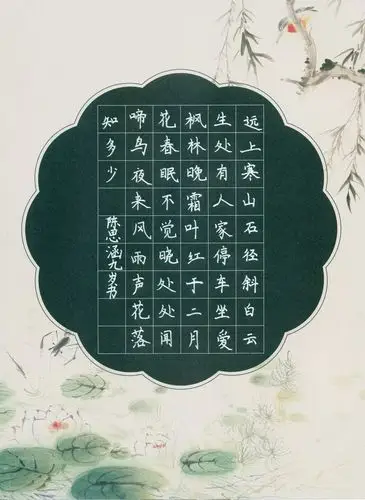 远上寒山石径斜白云
生处有人家停车坐愛
枫林晚霜叶红于二月
花春眠不觉晓处处闻
啼鸟夜来风雨声花落
知多少
陈思涵九岁书